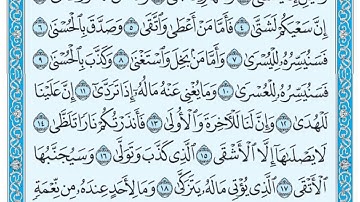 إِنَّ سَعْيَكُمْ لَشَتَّىٰ ٤ فَأَمَّا مَنْ أَعْطَىٰ وَٱتَّقَىٰ ٥ وَصَدَّقَ بِٱلْحُسْنَىٰ ٦
فَسَنُيَسِّرُهُۥ لِلْيُسْرَىٰ ٧ وَأَمَّا مَنۢ بَخِلَ وَٱسْتَغْنَىٰ ٨ وَكَذَّبَ بِٱلْحُسْنَىٰ ٩
فَسَنُيَسِّرُهُۥ لِلْعُسْرَىٰ ١٠ وَمَا يُغْنِى عَنْهُ مَالُهُۥٓ إِذَا تَرَدَّىٰٓ ١١ إِنَّ عَلَيْنَا
لَلْهُدَىٰ ١٢ وَإِنَّ لَنَا لَلْـَٔاخِرَةَ وَٱلْأُولَىٰ ١٣ فَأَنذَرْتُكُمْ نَارًا تَلَظَّىٰ ١٤
لَا يَصْلَىٰهَآ إِلَّا ٱلْأَشْقَى ١٥ ٱلَّذِى كَذَّبَ وَتَوَلَّىٰ ١٦ وَسَيُجَنَّبُهَا
ٱلْأَتْقَى ١٧ ٱلَّذِى يُؤْتِى مَالَهُۥ يَتَزَكَّىٰ ١٨ وَمَا لِأَحَدٍ عِندَهُۥ مِن نِّعْمَةٍ